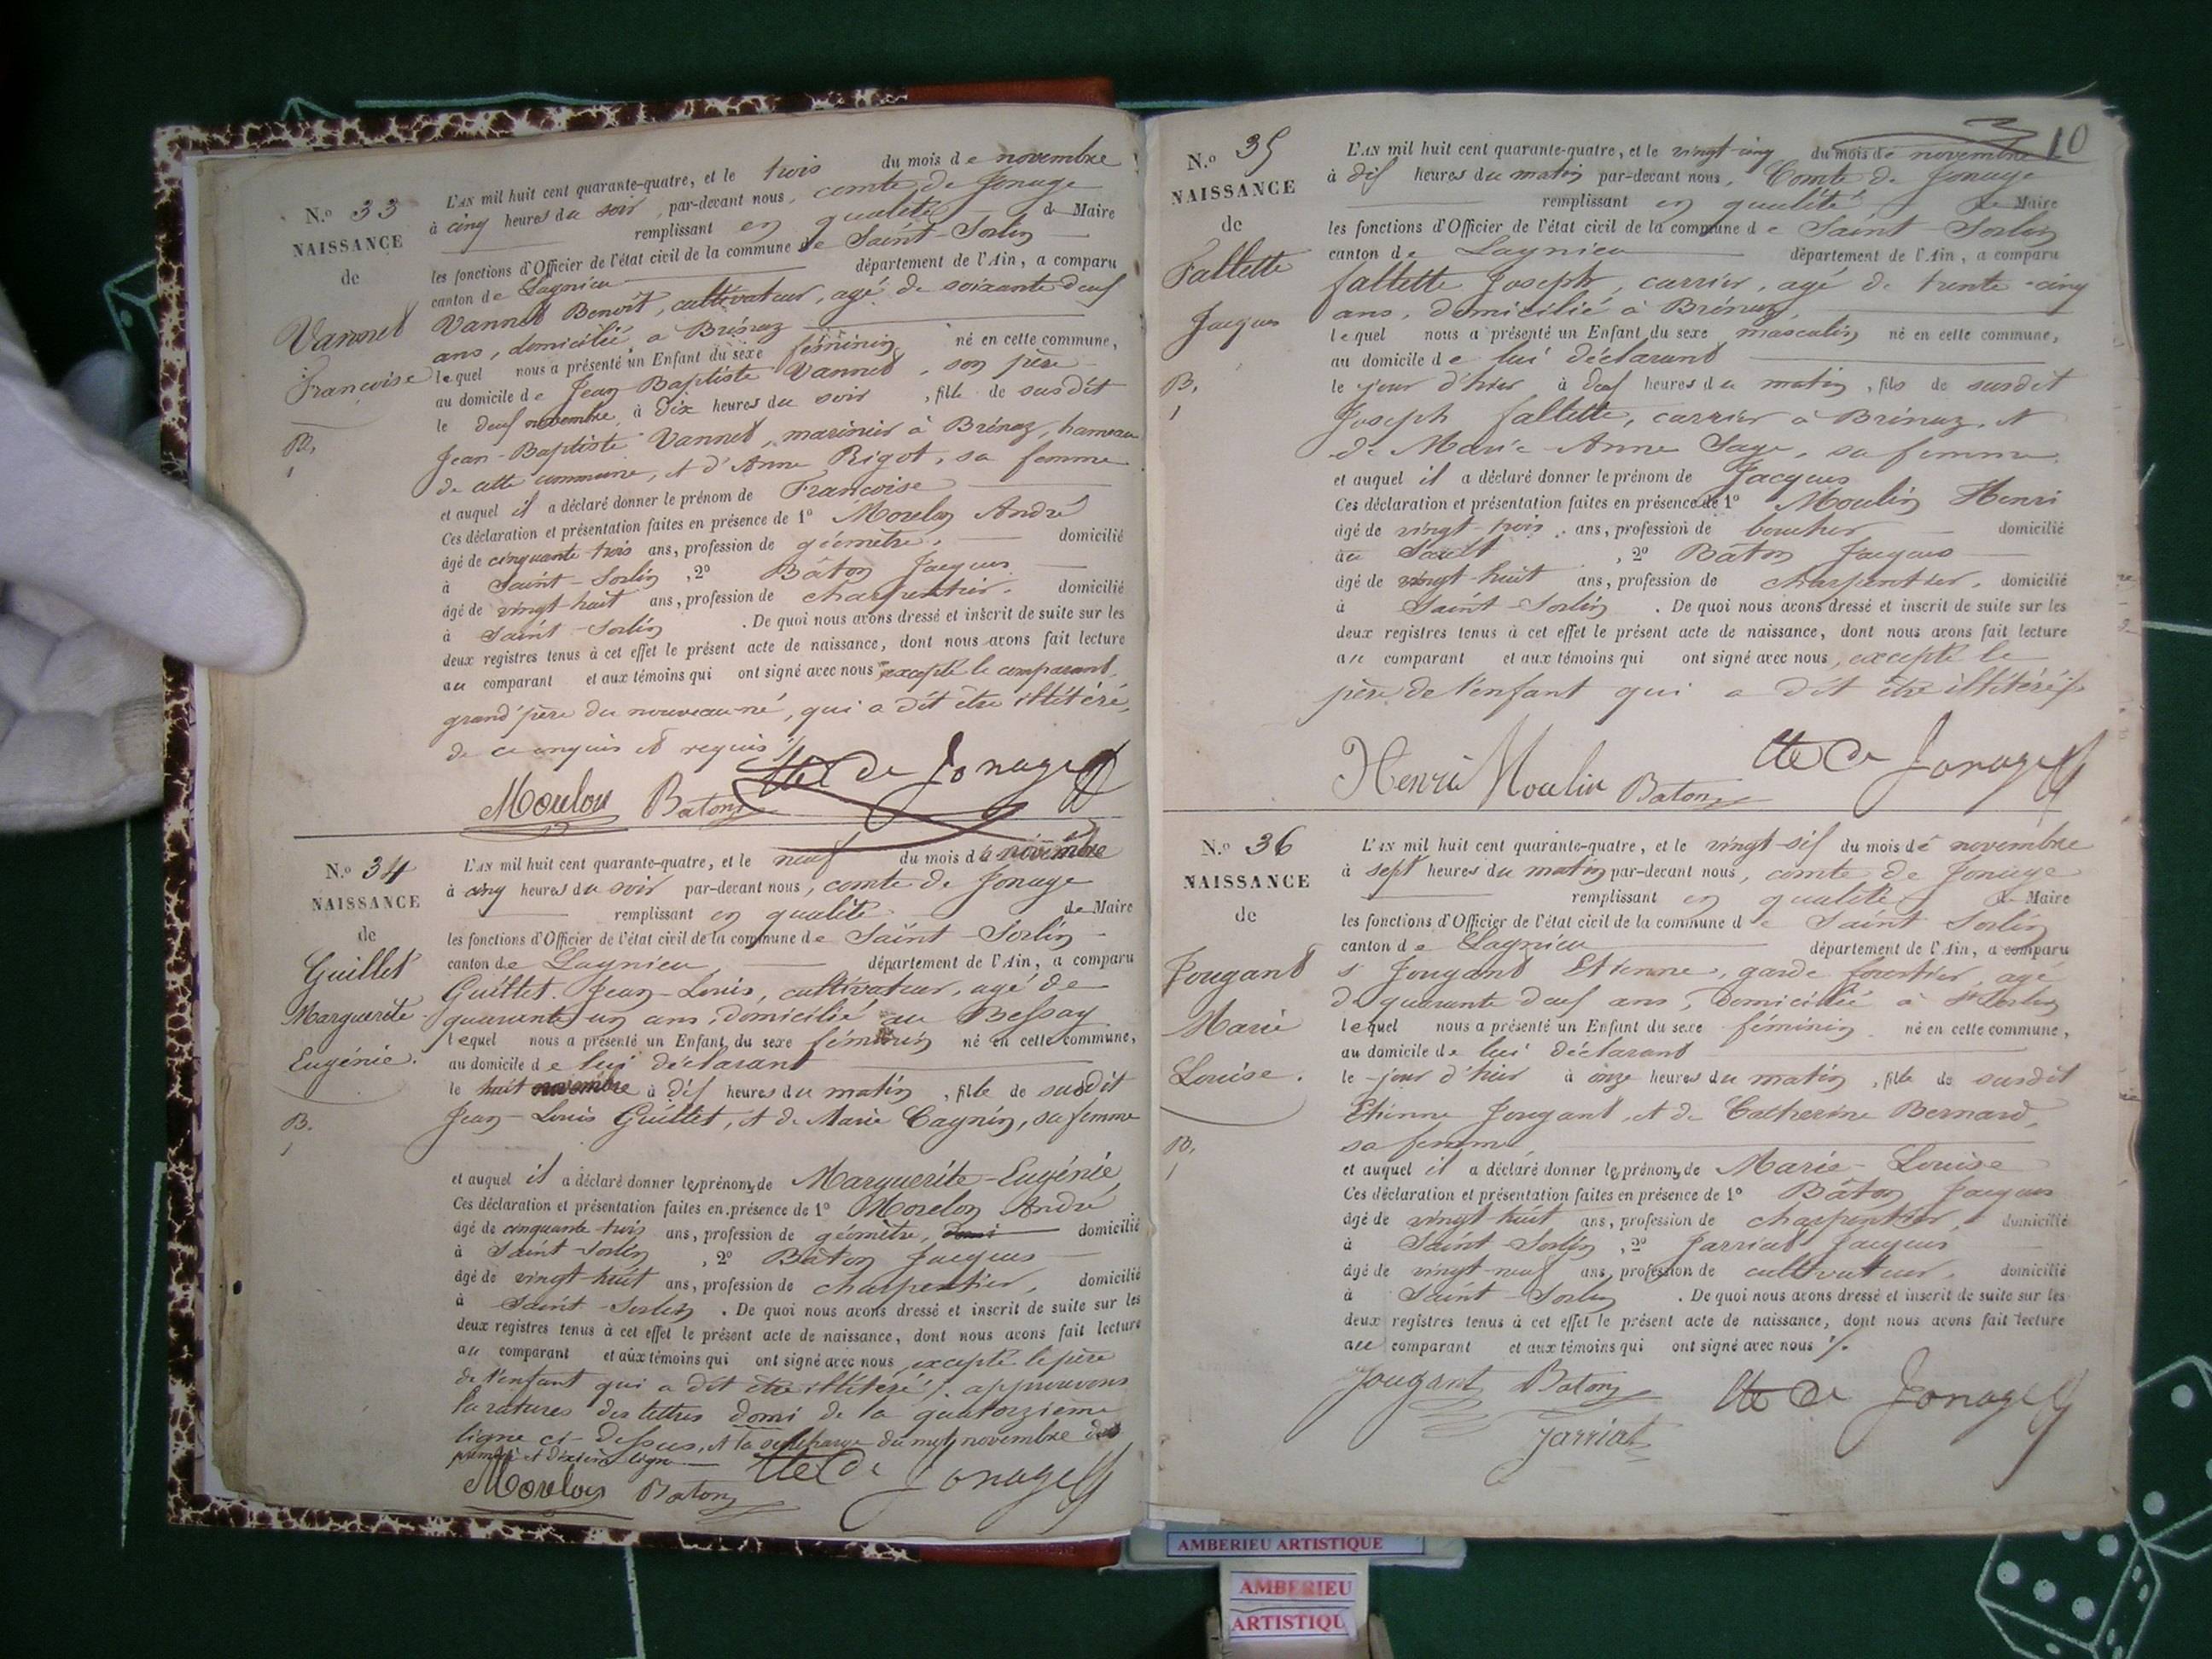 N.º 33
NAISSANCE
de
Vannet
Françoise
B.
1
L'AN mil huit cent quarante-quatre, et le trois du mois de novembre
à cinq heures du soir, par-devant nous, comte de Jonage
remplissant en qualité de Maire
les fonctions d'Officier de l'état civil de la commune de Saint-Sorlin
canton de Lagnieu département de l'Ain, a comparu
Vannet Benoît, cultivateur, agé de soixante deux
ans, domicilié à Brénaz
lequel nous a présenté un Enfant du sexe féminin né en cette commune,
au domicile de Jean Baptiste Vannet, son père
le deux novembre à dix heures du soir, fille de susdit
Jean-Baptiste Vannet, marinier à Brénaz, hameau
de cette commune, et d'Anne Rigot, sa femme
et auquel il a déclaré donner le prénom de Françoise
Ces déclaration et présentation faites en présence de 1º Morelon André
âgé de cinquante trois ans, profession de géomètre, domicilié
à Saint-Sorlin, 2º Bâton Jacques
âgé de vingt-huit ans, profession de charpentier, domicilié
à Saint-Sorlin. De quoi nous avons dressé et inscrit de suite sur les
deux registres tenus à cet effet le présent acte de naissance, dont nous avons fait lecture
au comparant et aux témoins qui ont signé avec nous excepté le comparant,
grand'père du nouveau-né, qui a dit être illitéré,
de ce enquis et requis ./.
Morelon Baton Cte de Jonage
N.º 34
NAISSANCE
de
Guillet
Marguerite
Eugénie.
B.
1
L'AN mil huit cent quarante-quatre, et le neuf du mois de novembre
à cinq heures du soir par-devant nous, comte de Jonage
remplissant en qualité de Maire
les fonctions d'Officier de l'état civil de la commune de Saint-Sorlin
canton de Lagnieu département de l'Ain, a comparu
Guillet Jean-Louis, cultivateur, agé de
quarante un ans, domicilié au Bessay
lequel nous a présenté un Enfant du sexe féminin né en cette commune,
au domicile de lui déclarant
le huit novembre à dix heures du matin, fille de susdit
Jean-Louis Guillet, et de Marie Cagnin, sa femme
et auquel il a déclaré donner les prénoms de Marguerite-Eugénie
Ces déclaration et présentation faites en présence de 1º Morelon André
âgé de cinquante trois ans, profession de géomètre, domi domicilié
à Saint-Sorlin, 2º Bâton Jacques
âgé de vingt-huit ans, profession de charpentier, domicilié
à Saint-Sorlin. De quoi nous avons dressé et inscrit de suite sur les
deux registres tenus à cet effet le présent acte de naissance, dont nous avons fait lecture
au comparant et aux témoins qui ont signé avec nous, excepté le père
de l'enfant qui a dit être illitéré ./. approuvons
la ratures des lettres domi de la quatorzième
ligne ci-dessus, et la surcharge du mot novembre des
première et dixième ligne
Morelon Baton Cte de Jonage
10
N.º 35
NAISSANCE
de
Fallette
Jacques
B.
1
L'AN mil huit cent quarante-quatre, et le vingt-cinq du mois de novembre
à dix heures du matin par-devant nous, Comte de Jonage
remplissant en qualité de Maire
les fonctions d'Officier de l'état civil de la commune de Saint-Sorlin
canton de Lagnieu département de l'Ain, a comparu
fallette Joseph, carrier, agé de trente-cinq
ans, domicilié à Brénaz,
lequel nous a présenté un Enfant du sexe masculin né en cette commune,
au domicile de lui déclarant
le jour d'hier à deux heures du matin, fils de susdit
Joseph fallette, carrier à Brénaz, et
de Marie-Anne Sage, sa femme
et auquel il a déclaré donner le prénom de Jacques
Ces déclaration et présentation faites en présence de 1º Moulin Henri
âgé de vingt-trois ans, profession de boucher domicilié
au Sault, 2º Bâton Jacques
âgé de vingt-huit ans, profession de charpentier, domicilié
à Saint-Sorlin. De quoi nous avons dressé et inscrit de suite sur les
deux registres tenus à cet effet le présent acte de naissance, dont nous avons fait lecture
au comparant et aux témoins qui ont signé avec nous, excepté le
père de l'enfant qui a dit être illitéré ./.
Henri Moulin Baton Cte de Jonage
N.º 36
NAISSANCE
de
Jougant
Marie
Louise.
B.
1
L'AN mil huit cent quarante-quatre, et le vingt-six du mois de novembre
à sept heures du matin par-devant nous, comte de Jonage
remplissant en qualité de Maire
les fonctions d'Officier de l'état civil de la commune de Saint Sorlin
canton de Lagnieu département de l'Ain, a comparu
s' Jougant Etienne, garde forestier, agé
de quarante deux ans, domicilié à St Sorlin
lequel nous a présenté un Enfant du sexe féminin né en cette commune,
au domicile de lui déclarant
le jour d'hier à onze heures du matin, fille de susdit
Etienne Jougant, et de Catherine Bernard,
sa femme
et auquel il a déclaré donner les prénoms de Marie-Louise
Ces déclaration et présentation faites en présence de 1º Bâton Jacques
âgé de vingt-huit ans, profession de charpentier, domicilié
à Saint-Sorlin, 2º Jarriat Jacques
âgé de vingt-neuf ans, profession de cultivateur, domicilié
à Saint-Sorlin. De quoi nous avons dressé et inscrit de suite sur les
deux registres tenus à cet effet le présent acte de naissance, dont nous avons fait lecture
au comparant et aux témoins qui ont signé avec nous ./.
Jougant Baton Cte de Jonage
Jarriat
AMBERIEU ARTISTIQUE
AMBERIEU
ARTISTIQU